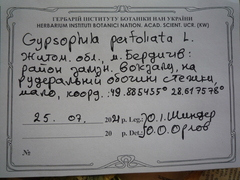 ГЕРБАРІЙ ІНСТИТУТУ БОТАНІКИ НАН УКРАЇНИ
HERBARIUM INSTITUTI BOTANICI NATION. ACAD. SCIENT. UCR. (KW)
Gypsophila perfoliata L.
Житом. обл., м. Бердичів:
район залізн. вокзалу, на
рудеральній обочині стежки,
мало, коорд.: 49.885455° 28.617576°
25. 07. 2021 р. Leg.: Ю.І. Шиндер
20 р. Det. Ю.О.О. Орлов
№